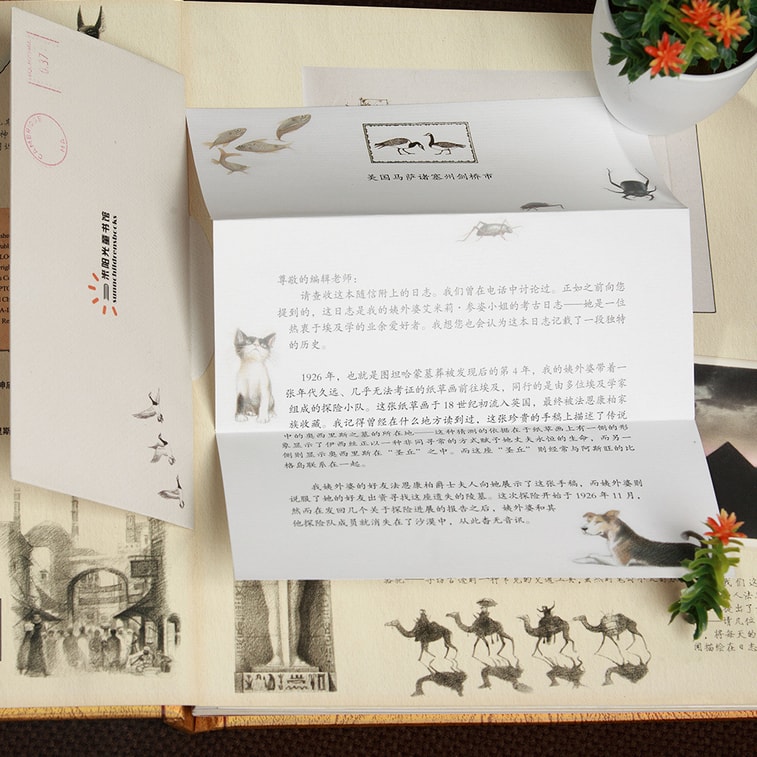 禾阳光童书馆
sunnchildrensbooks
美国马萨诸塞州剑桥市
尊敬的编辑老师：
请查收这本随信附上的日志。我们曾在电话中讨论过。正如之前向您
提到的，这日志是我的姨外婆艾米莉·参姿小姐的考古日志——她是一位
热衷于埃及学的业余爱好者。我想您也会认为这本日志记载了一段独特
的历史。
1926 年，也就是图坦哈蒙墓葬被发现后的第 4 年，我的姨外婆带着一
张年代久远、几乎无法考证的纸草画前往埃及，同行的是由多位埃及学家
组成的探险小队。这张纸草画于 18 世纪初流入英国，最终被法恩康柏家
族收藏。我记得曾经在什么地方读到过，这张珍贵的手稿上描述了传说
中的奥西里斯之墓的所在地——这种猜测的依据在于纸草画上有一侧的形
象显示了伊西丝正以一种非同寻常的方式赋予她丈夫永恒的生命，而另一
侧则显示奥西里斯在“圣丘”之中。而这座“圣丘”则经常与阿斯旺的比
格岛联系在一起。
我姨外婆的好友法恩康柏爵士夫人向她展示了这张手稿，而姨外婆则
说服了她的好友出资寻找这座遗失的陵墓。这次探险开始于 1926 年 11 月，
然而在发回几个关于探险进展的报告之后，姨外婆和其
他探险队成员就消失在了沙漠中，从此杳无音讯。